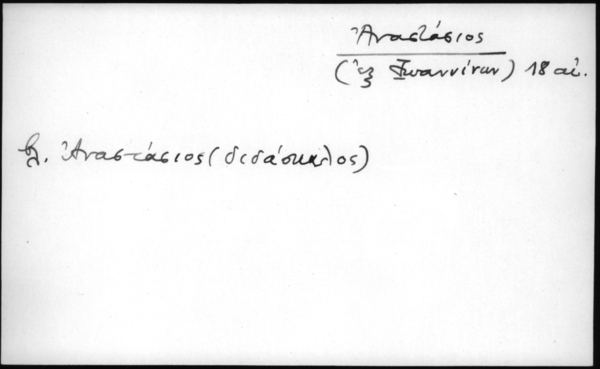 Ἀναστάσιος
(ἐξ Ἰωαννίνων) 18 αἰ.
βλ. Ἀναστάσιος (διδάσκαλος)